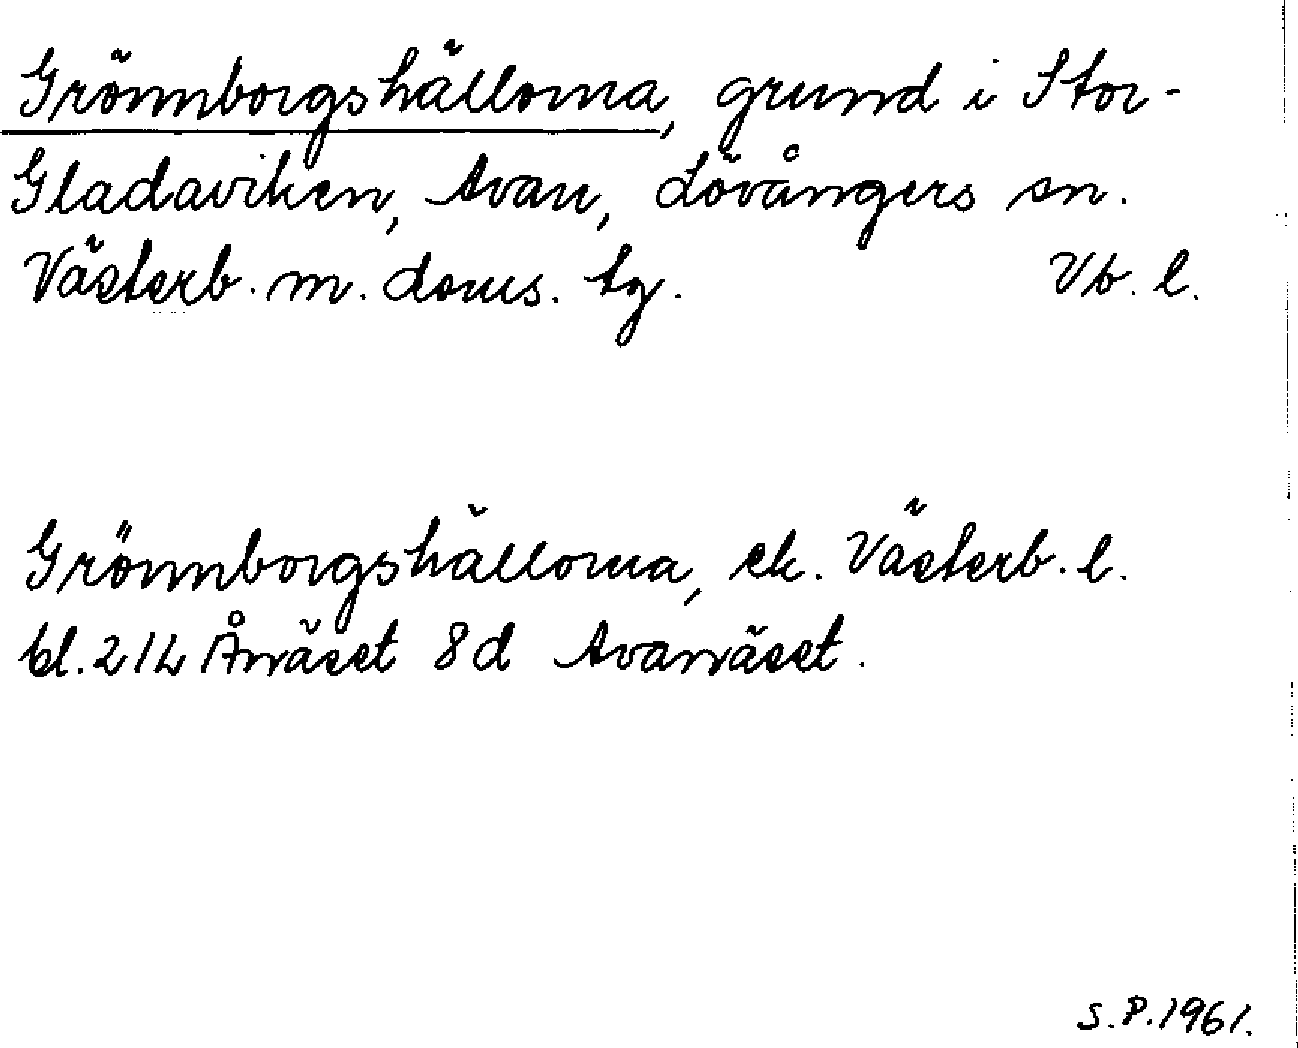 Grönnborgshällorna, grund i Stor-
Gladaviken, Avan, Lövångers sn.
Västerb. m. doms. tg. Vb. l.
Grönnborgshällorna, ek. Västerb. l.
bl. 21L Ånäset 8d Avanäset.
S.P.1961.